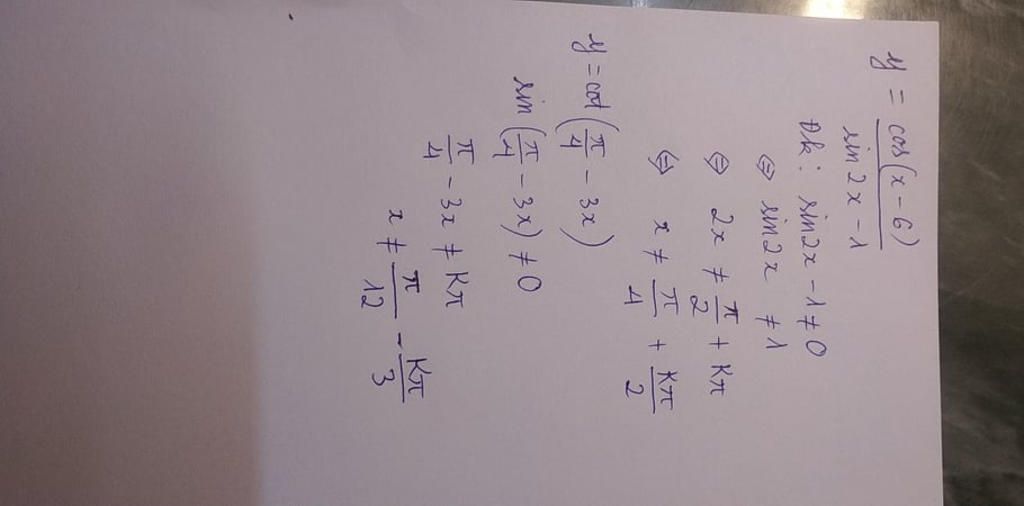 y = cos(x - 6) / sin 2x - 1
Đk: sin2x - 1 ≠ 0
⇔ sin2x ≠ 1
⇔ 2x ≠ π/2 + Kπ
⇔ x ≠ π/4 + Kπ/2
y = cot(π/4 - 3x)
sin(π/4 - 3x) ≠ 0
π/4 - 3x ≠ Kπ
x ≠ π/12 - Kπ/3